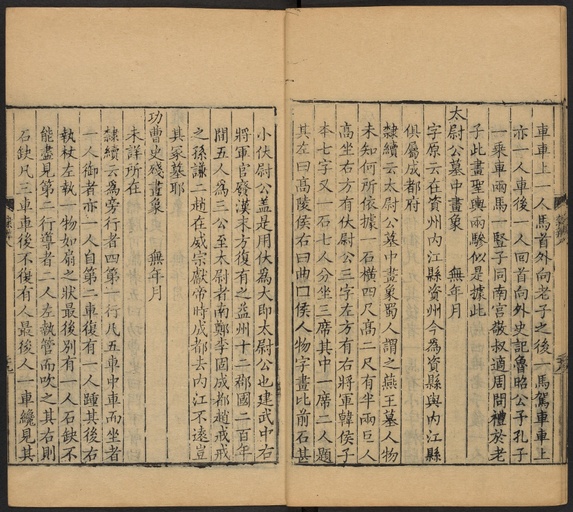 車車上一人馬首外向老子之後一馬駕車車上
亦一人車後一人回首向外史記魯昭公子孔子
一乘車兩馬一豎子同南宮敬叔適周問禮於老
子此畫聖輿兩驂似是據此
太尉公墓中畫象 無年月
字原云在資州內江縣資州今為資縣與內江縣
俱屬成都府
隸續云太尉公墓中畫象蜀人謂之燕王墓人物
未知何所依據一石橫四尺高二尺有半兩巨人
高坐右方有伏尉公三字左方有右將軍韓侯子
本七字又一石七人分坐三席其中一席二人題
其左曰高陵侯右曰曲口侯人物字畫比前石甚
小伏尉公蓋是用伏為大即太尉公也建武中右
將軍官廢漢末方復有之益州十二郡國二百年
間五人為三公至太尉者南鄭李固成都趙戒戒
之孫謙二趙在威宗獻帝時成都去內江不遠豈
其冢墓耶
功曹史殘畫象 無年月
未詳所在
隸續云為旁行者四第一行凡五車中車而坐者
一人御者亦一人自第二車復有一人踵其後右
執杖左執一物如扇之狀最後別有一人石缺不
能盡見第二行導者二人左執管而吹之其右則
石缺凡三車車後不復有人最後人一車纔見其